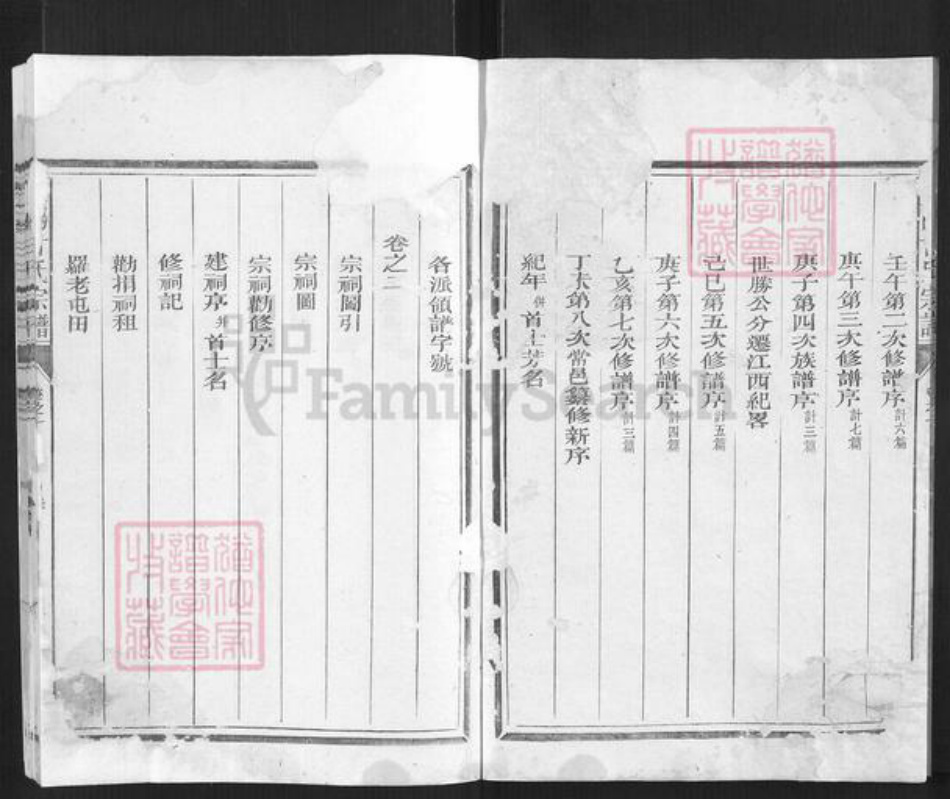 壬午第二次修譜序計六篇
庚午第三次修譜序計七篇
庚子第四次族譜序計三篇
世勝公分遷江西紀畧
己巳第五次修譜序計五篇
庚子第六次修譜序計四篇
乙亥第七次修譜序計三篇
丁未第八次常邑纂修新序
紀年併首士芳名
各派領譜字號
卷之二
宗祠圖引
宗祠圖
宗祠勸修序
建祠序并首士名
修祠記
勸捐祠租
羅老屯田
FamilySearch